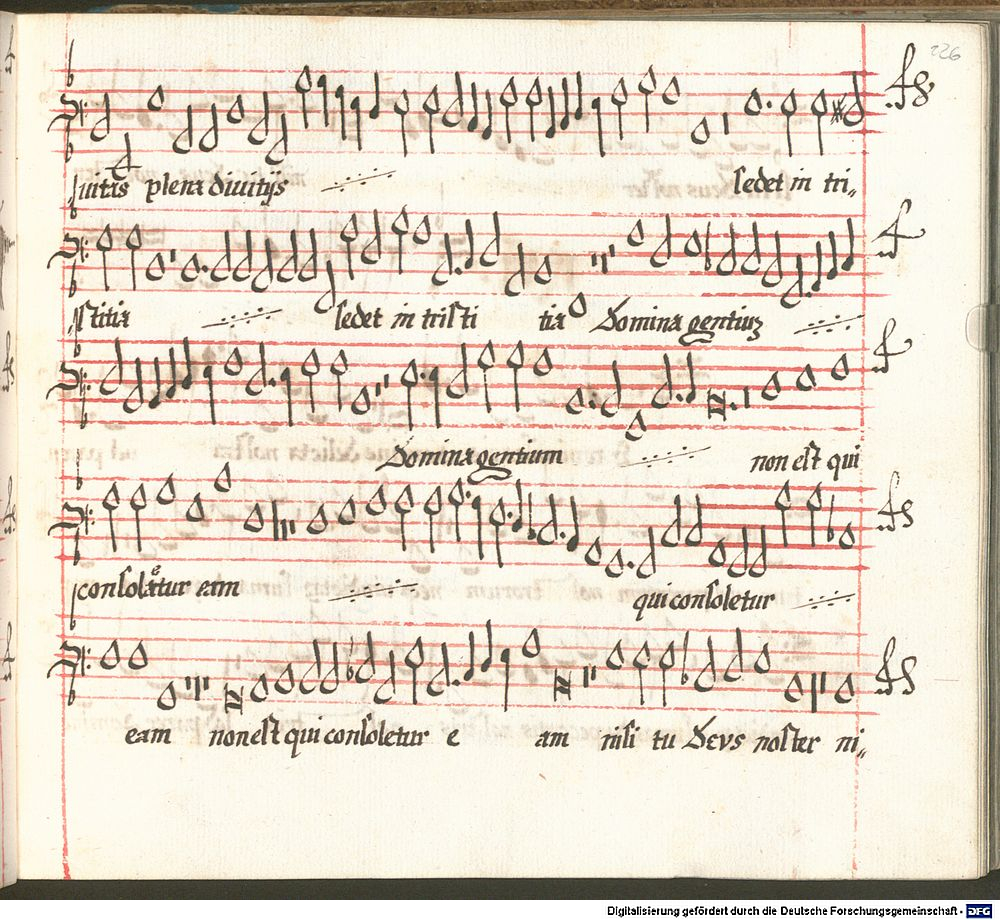 226
uitas plena divitijs sedet in tri„
stitia sedet in tristi tia Domina gentiuz
Domina gentium non est qui
consoletur eam qui consoletur
eam non est qui consoletur e am nisi tu Deus noster ni„
Digitalisierung gefördert durch die Deutsche Forschungsgemeinschaft - DFG